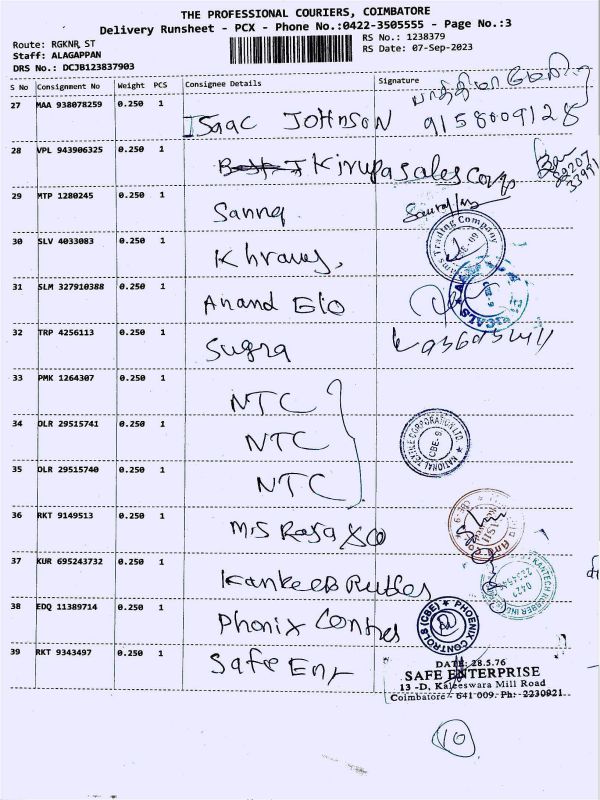 THE PROFESSIONAL COURIERS, COIMBATORE
Delivery Runsheet - PCX - Phone No.:0422-3505555 - Page No.:3
Route: RGKNR ST
Staff: ALAGAPPAN
DRS No.: DCJB123837903
RS No.: 1238379
RS Date: 07-Sep-2023
S No Consignment No Weight PCS Consignee Details Signature
27 MAA 938078259 0.250 1 Isaac Johnson 9158009128
28 VPL 943906325 0.250 1 Kirupa Sales Corp
29 MTP 1280245 0.250 1 Sanna
30 SLV 4033083 0.250 1
31 SLM 327910388 0.250 1 Anand Elo
32 TRP 4256113 0.250 1 Sugra
33 PMK 1264307 0.250 1 NTC
34 DLR 29515741 0.250 1 NTC
NATIONAL TEXTILE CORPORATION LTD.
CBE-9
35 DLR 29515740 0.250 1 NTC
36 RKT 9149513 0.250 1 M/S Raja & Co
37 KUR 695243732 0.250 1
38 EDQ 11389714 0.250 1 Phonix Contres
PHOENIX CONTROLS (CBE)
39 RKT 9343497 0.250 1 Safe Ent
DATE: 28.5.76
SAFE ENTERPRISE
13 -D, Kaleeswara Mill Road
Coimbatore - 641 009. Ph: 2230921
10